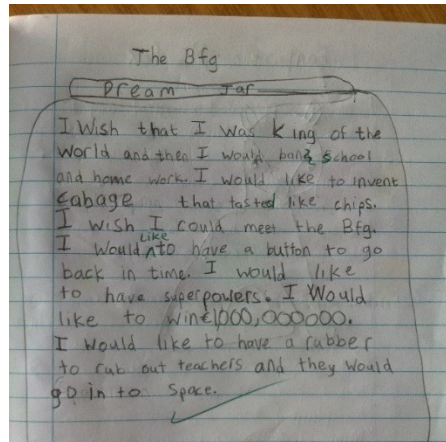 The Bfg
Dream Jar
I Wish that I was King of the
world and then I would ban school
and home work. I would like to invent
cabage that tasted like chips.
I wish I could meet the Bfg.
I would like to have a button to go
back in time. I would like
to have superpowers. I Would
like to win €1000,000000.
I would like to have a rubber
to rub out teachers and they would
go in to Space.